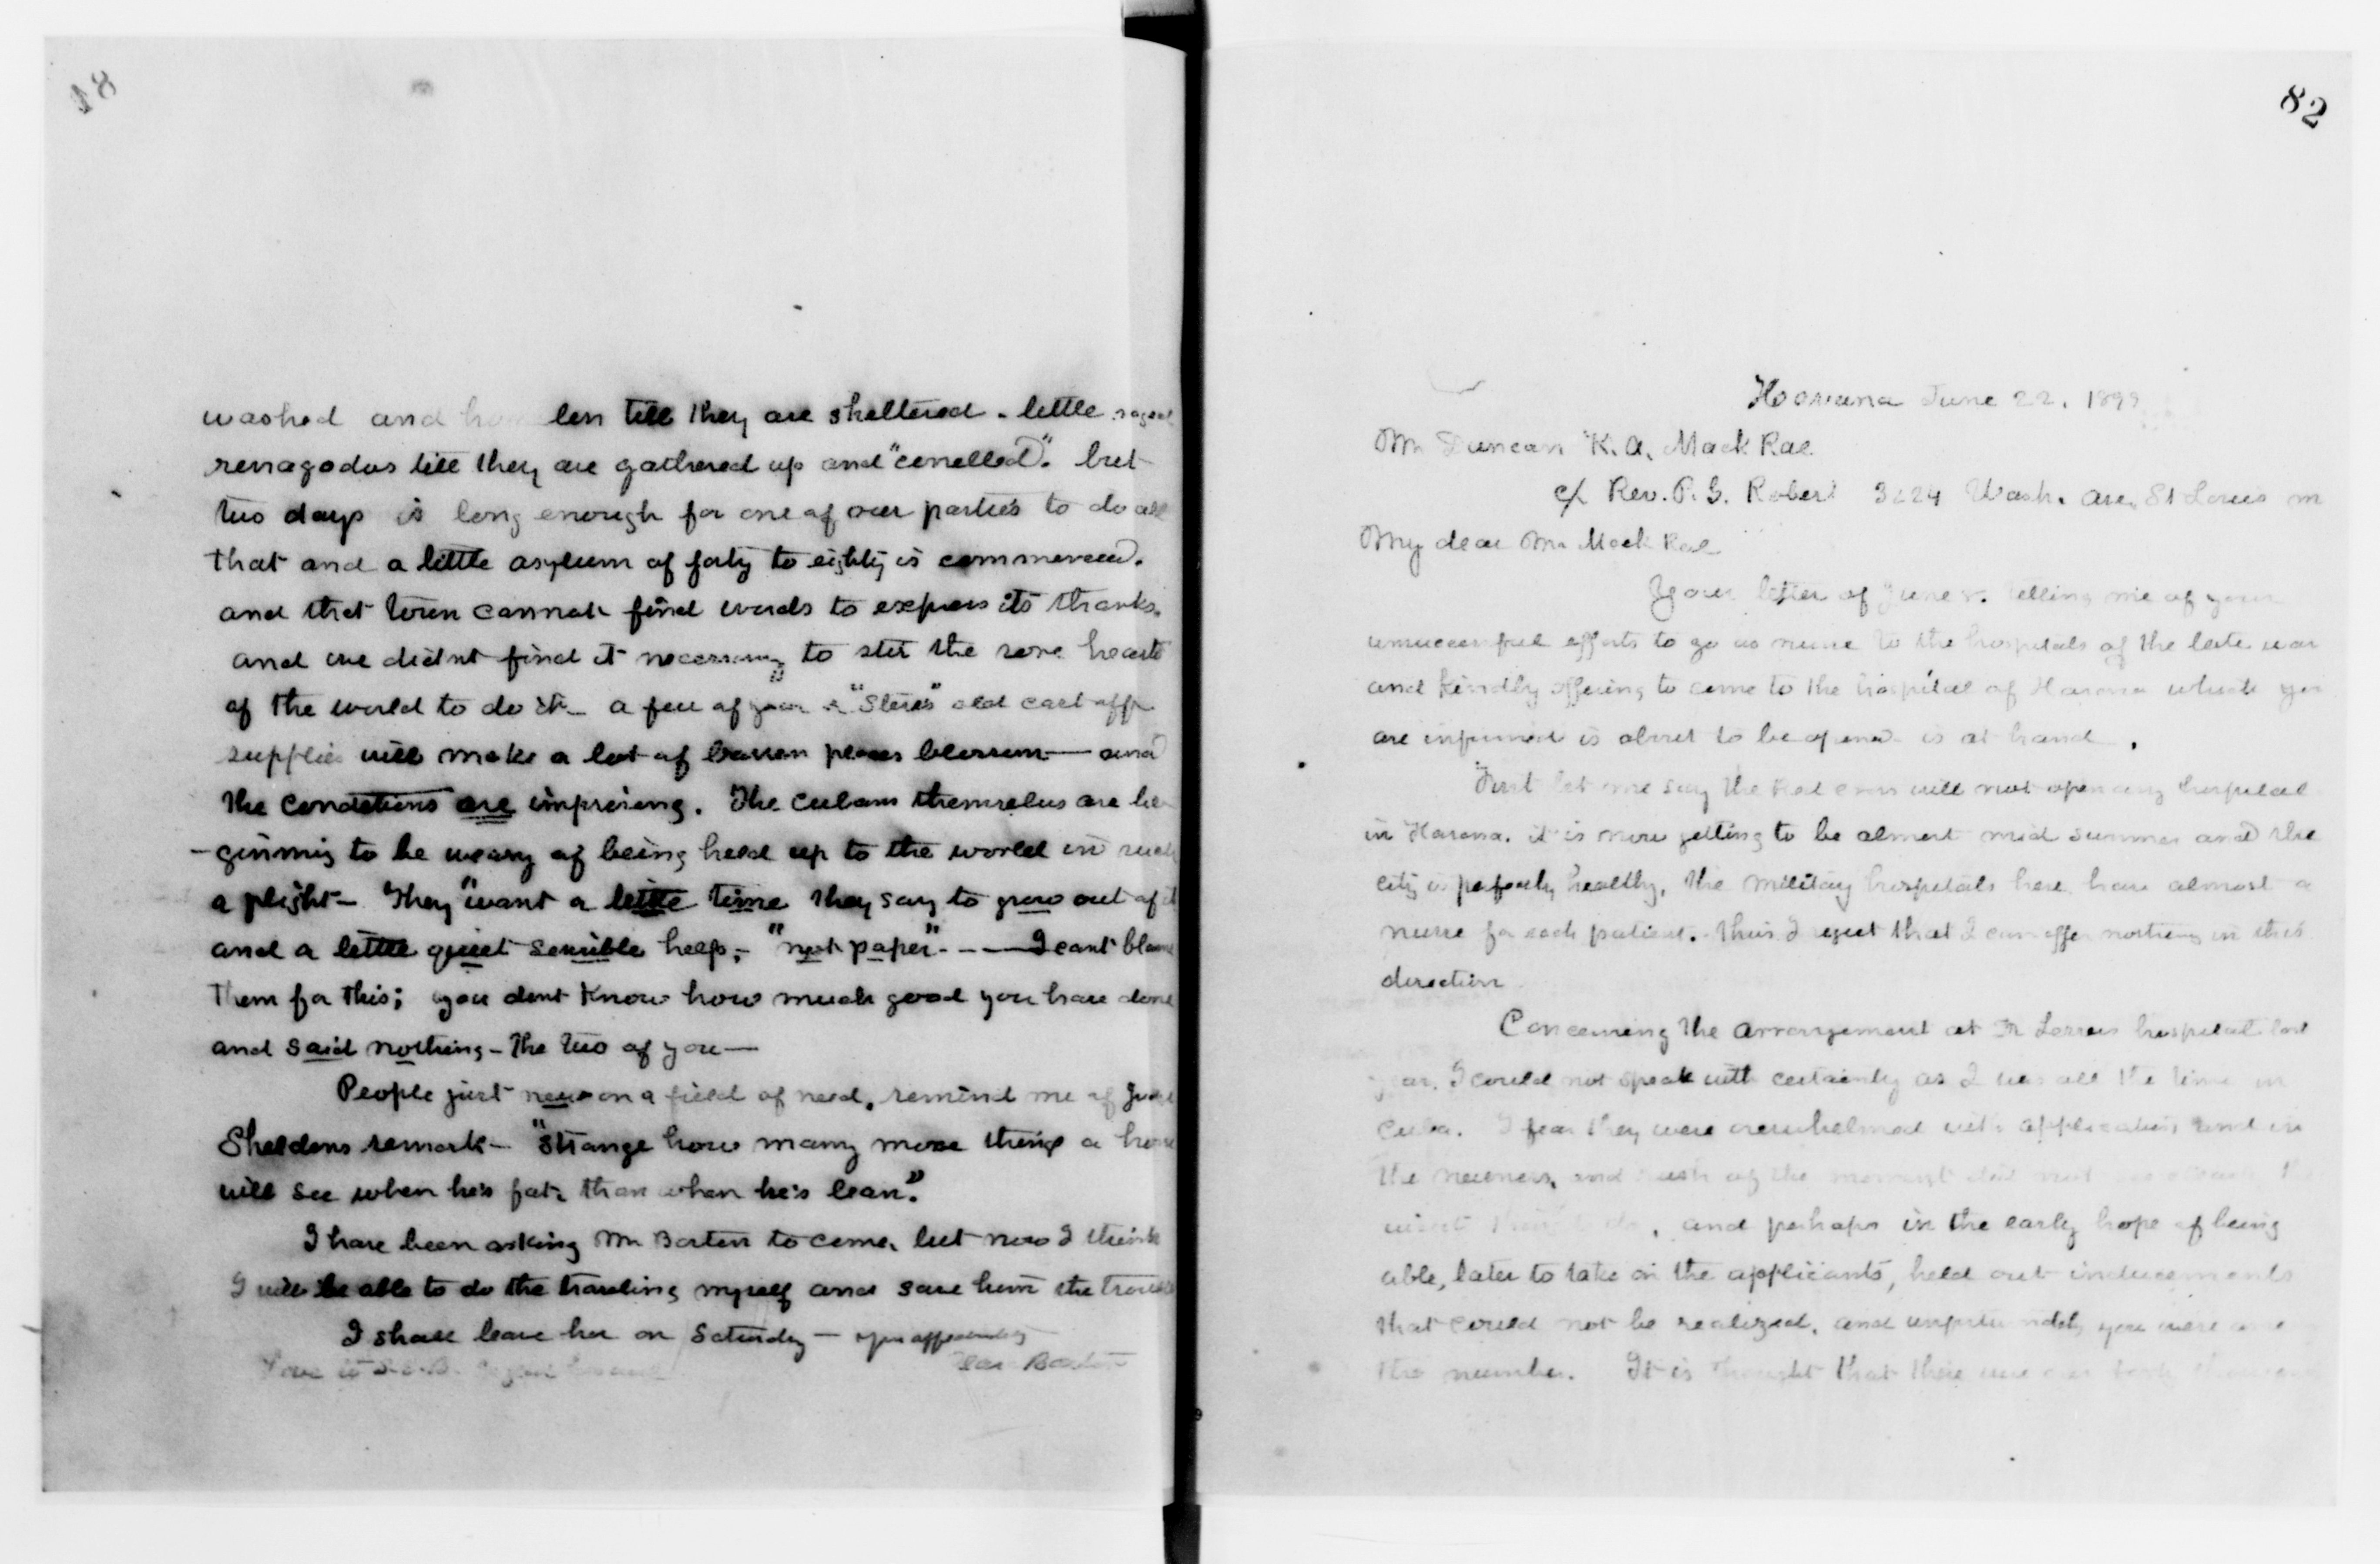 81
washed and len till they are sheltered - little
renagodos till they are gathered up and "cenelled". but
two days is long enough for one of our parties to do all
that and a little asylum of forty to eighty is commenced.
and that town cannot find words to express its thanks.
and we didnt find it necessary to stir the sore hearts
of the world to do it - a few of your "Steres" old cast off
supplies will make a lot of barren places blossom — and
the conditions are improving. The Cubans themselves are be
-ginning to be weary of being held up to the world in such
a plight - They "want a little time they say to grow out of it
and a little quiet sensible help, - "not paper" - - — I cant blame
them for this; you dont know how much good you have done
and said nothing - the two of you —
People just new on a field of need, remind me of
Sheldons remark - "Strange how many more things a horse
will see when he's fat, than when he's lean."
I have been asking Mr Barton to come, but now I think
I will be able to do the traveling myself and save him the trouble
I shall leave her on Saturday - affectionately
Love to Barton
82
Havana June 22, 1899
Mr Duncan K. A. Mack Rae
c/ Rev. P. G. Robert 3224 Wash. Ave. St Louis m
My dear Mr Mack Rae
Your letter of June telling me of your
unsuccessful efforts to go as nurse to the hospitals of the late war
and kindly offering to come to the hospital of Havana which you
are informed is about to be opened is at hand.
First let me say the Red Cross will not open any hospital
in Havana. it is now getting to be almost mid summer and the
city is perfectly healthy, the military hospitals here have almost a
nurse for each patient. Thus I regret that I can offer nothing in this
direction
Concerning the arrangement at St Louis hospital last
year. I could not speak with certainty as I was all the time in
Cuba. I fear they were overwhelmed with applications and in
the newness, and rush of the moment did not
, and perhaps in the early hope of being
able, later to take on the applicants, held out inducements
that could not be realized, and unfortunately you were one
the number. It is thought that there were